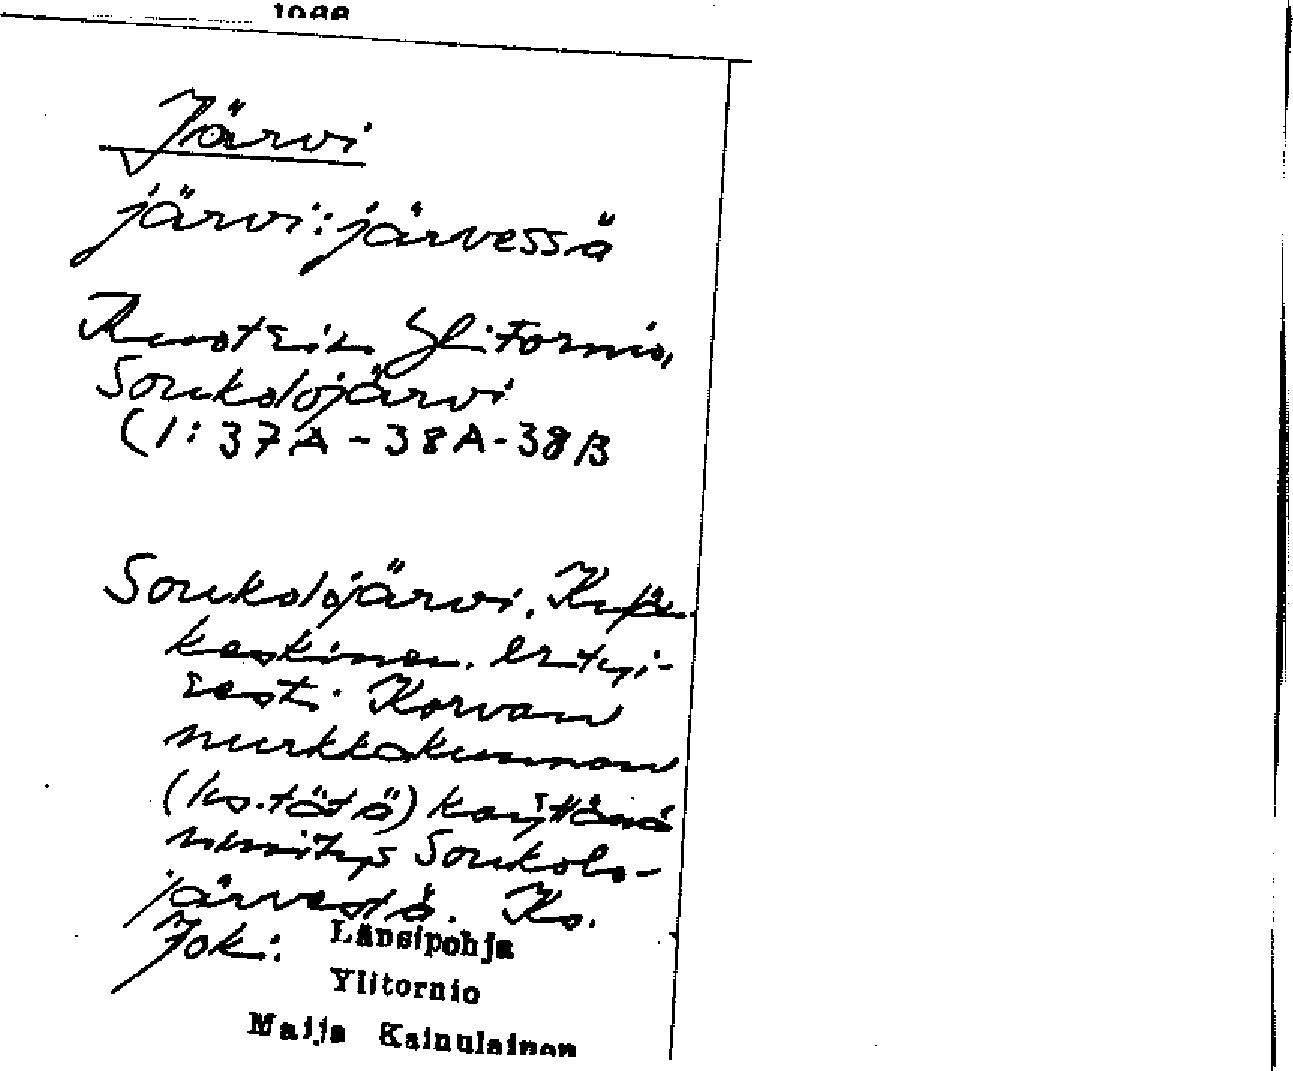 Järvi
järvi: järvessä
Ruotsin Ylitornio,
Soukolojärvi
(1: 37A - 38A - 38B
Soukolojärvi. Kylä-
keskinen, erityi-
sesti Korvan
nurkkakunnan
(ks. tätä) käyttämä
nimitys Soukolo-
järvestä. Ks.
Joki.
Länsipohja
Ylitornio
Maija Kainulainen